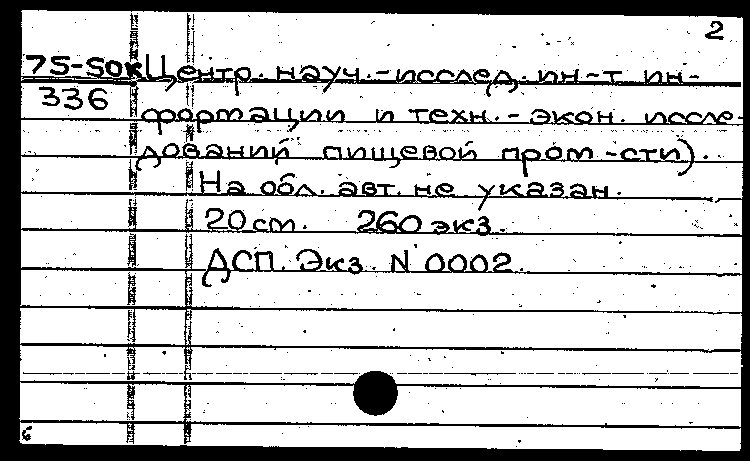 2
75-50к Центр. науч.-исслед. ин-т ин-
336
формации и техн.- экон. иссле-
дований пищевой пром-сти).
На обл. авт. не указан.
20 cm. 260 экз.
ДСП. Экз. N 0002.
6